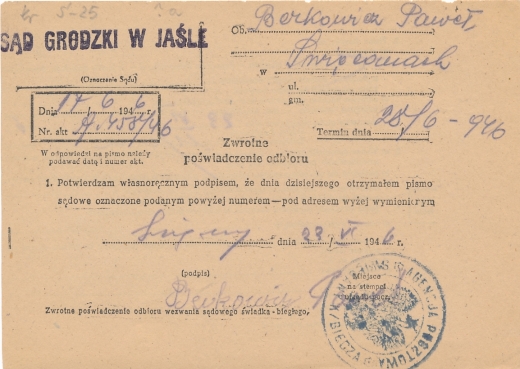 5-25
SĄD GRODZKI W JAŚLE
(Oznaczenie Sądu)
Ob. Berkowicz Paweł,
w Święcanach
ul.
gm.
Dnia 14/6 1946 r.
Nr. akt 458/46
W odpowiedzi na pismo należy
podawać datę i numer akt.
Terminu dnia 28/6 - 946
Zwrotne
poświadczenie odbioru
1. Potwierdzam własnoręcznym podpisem, że dnia dzisiejszego otrzymałem pismo
sądowe oznaczone podanym powyżej numerem—pod adresem wyżej wymienionym
dnia 22/VI 1946 r.
(podpis)
Berkowicz P
Miejsce
na stempel
Zwrotne poświadczenie odbioru wezwania sądowego świadka-biegłego,
AGENCJA POCZTOWA